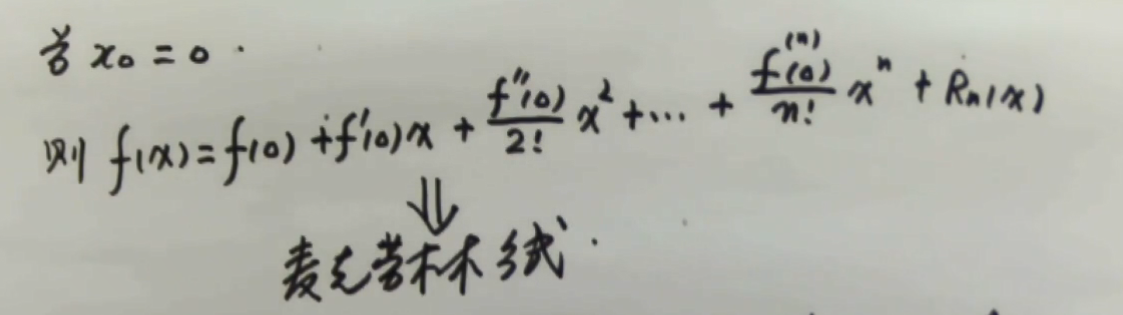 若 x₀ = 0 .
则 f(x) = f(0) + f'(0)x + \frac{f''(0)}{2!} x² + ... + \frac{f^{(n)}(0)}{n!} xⁿ + Rₙ(x)
⇓
麦克劳林式 .